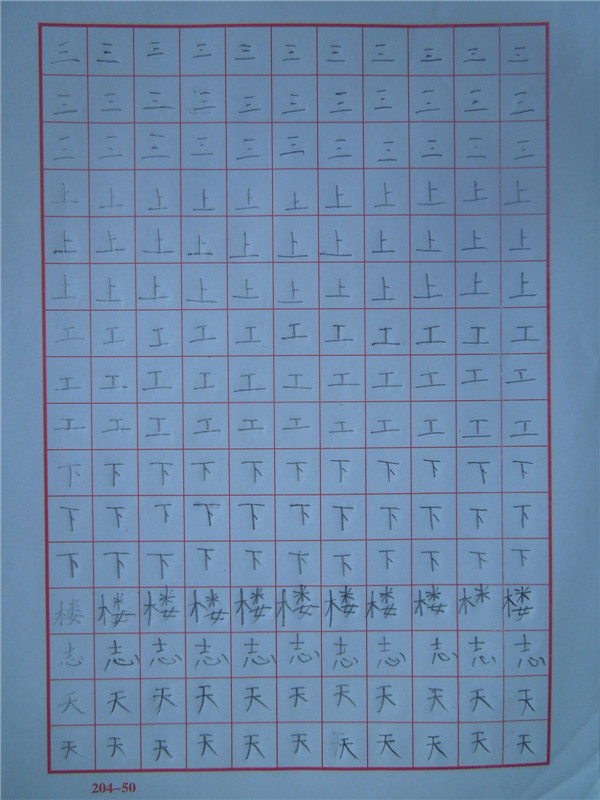 三三三三三三三三三三三
三三三三三三三三三三三
三三三三三三三三三三三
上上上上上上上上上上上
上上上上上上上上上上上
上上上上上上上上上上上
工工工工工工工工工工工
工工工工工工工工工工工
工工工工工工工工工工工
下下下下下下下下下下下
下下下下下下下下下下下
下下下下下下下下下下下
楼楼楼楼楼楼楼楼楼楼
志志志志志志志志志志志
天天天天天天天天天天天
天天天天天天天天天天天
204-50